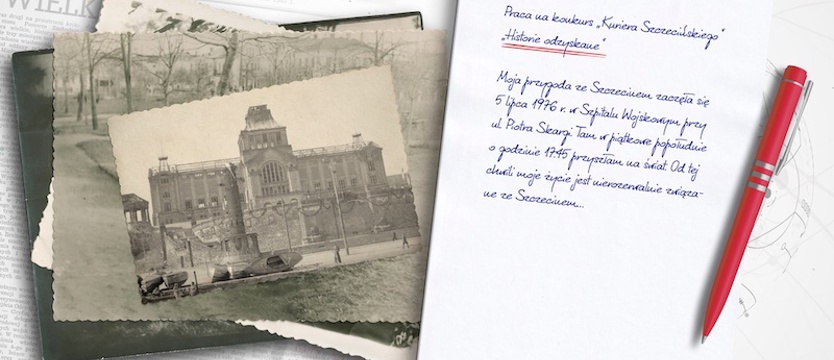 WIELK
Praca na konkurs „Kuriera Szczecińskiego"
„Historie odzyskane"
Moja przygoda ze Szczecinem zaczęła się
5 lipca 1976 r. w Szpitalu Wojskowym przy
ul. Piotra Skargi. Tam w piątkowe popołudnie
o godzinie 17.45 przyszłam na świat. Od tej
chwili moje życie jest nierozerwalnie związa-
ne ze Szczecinem...